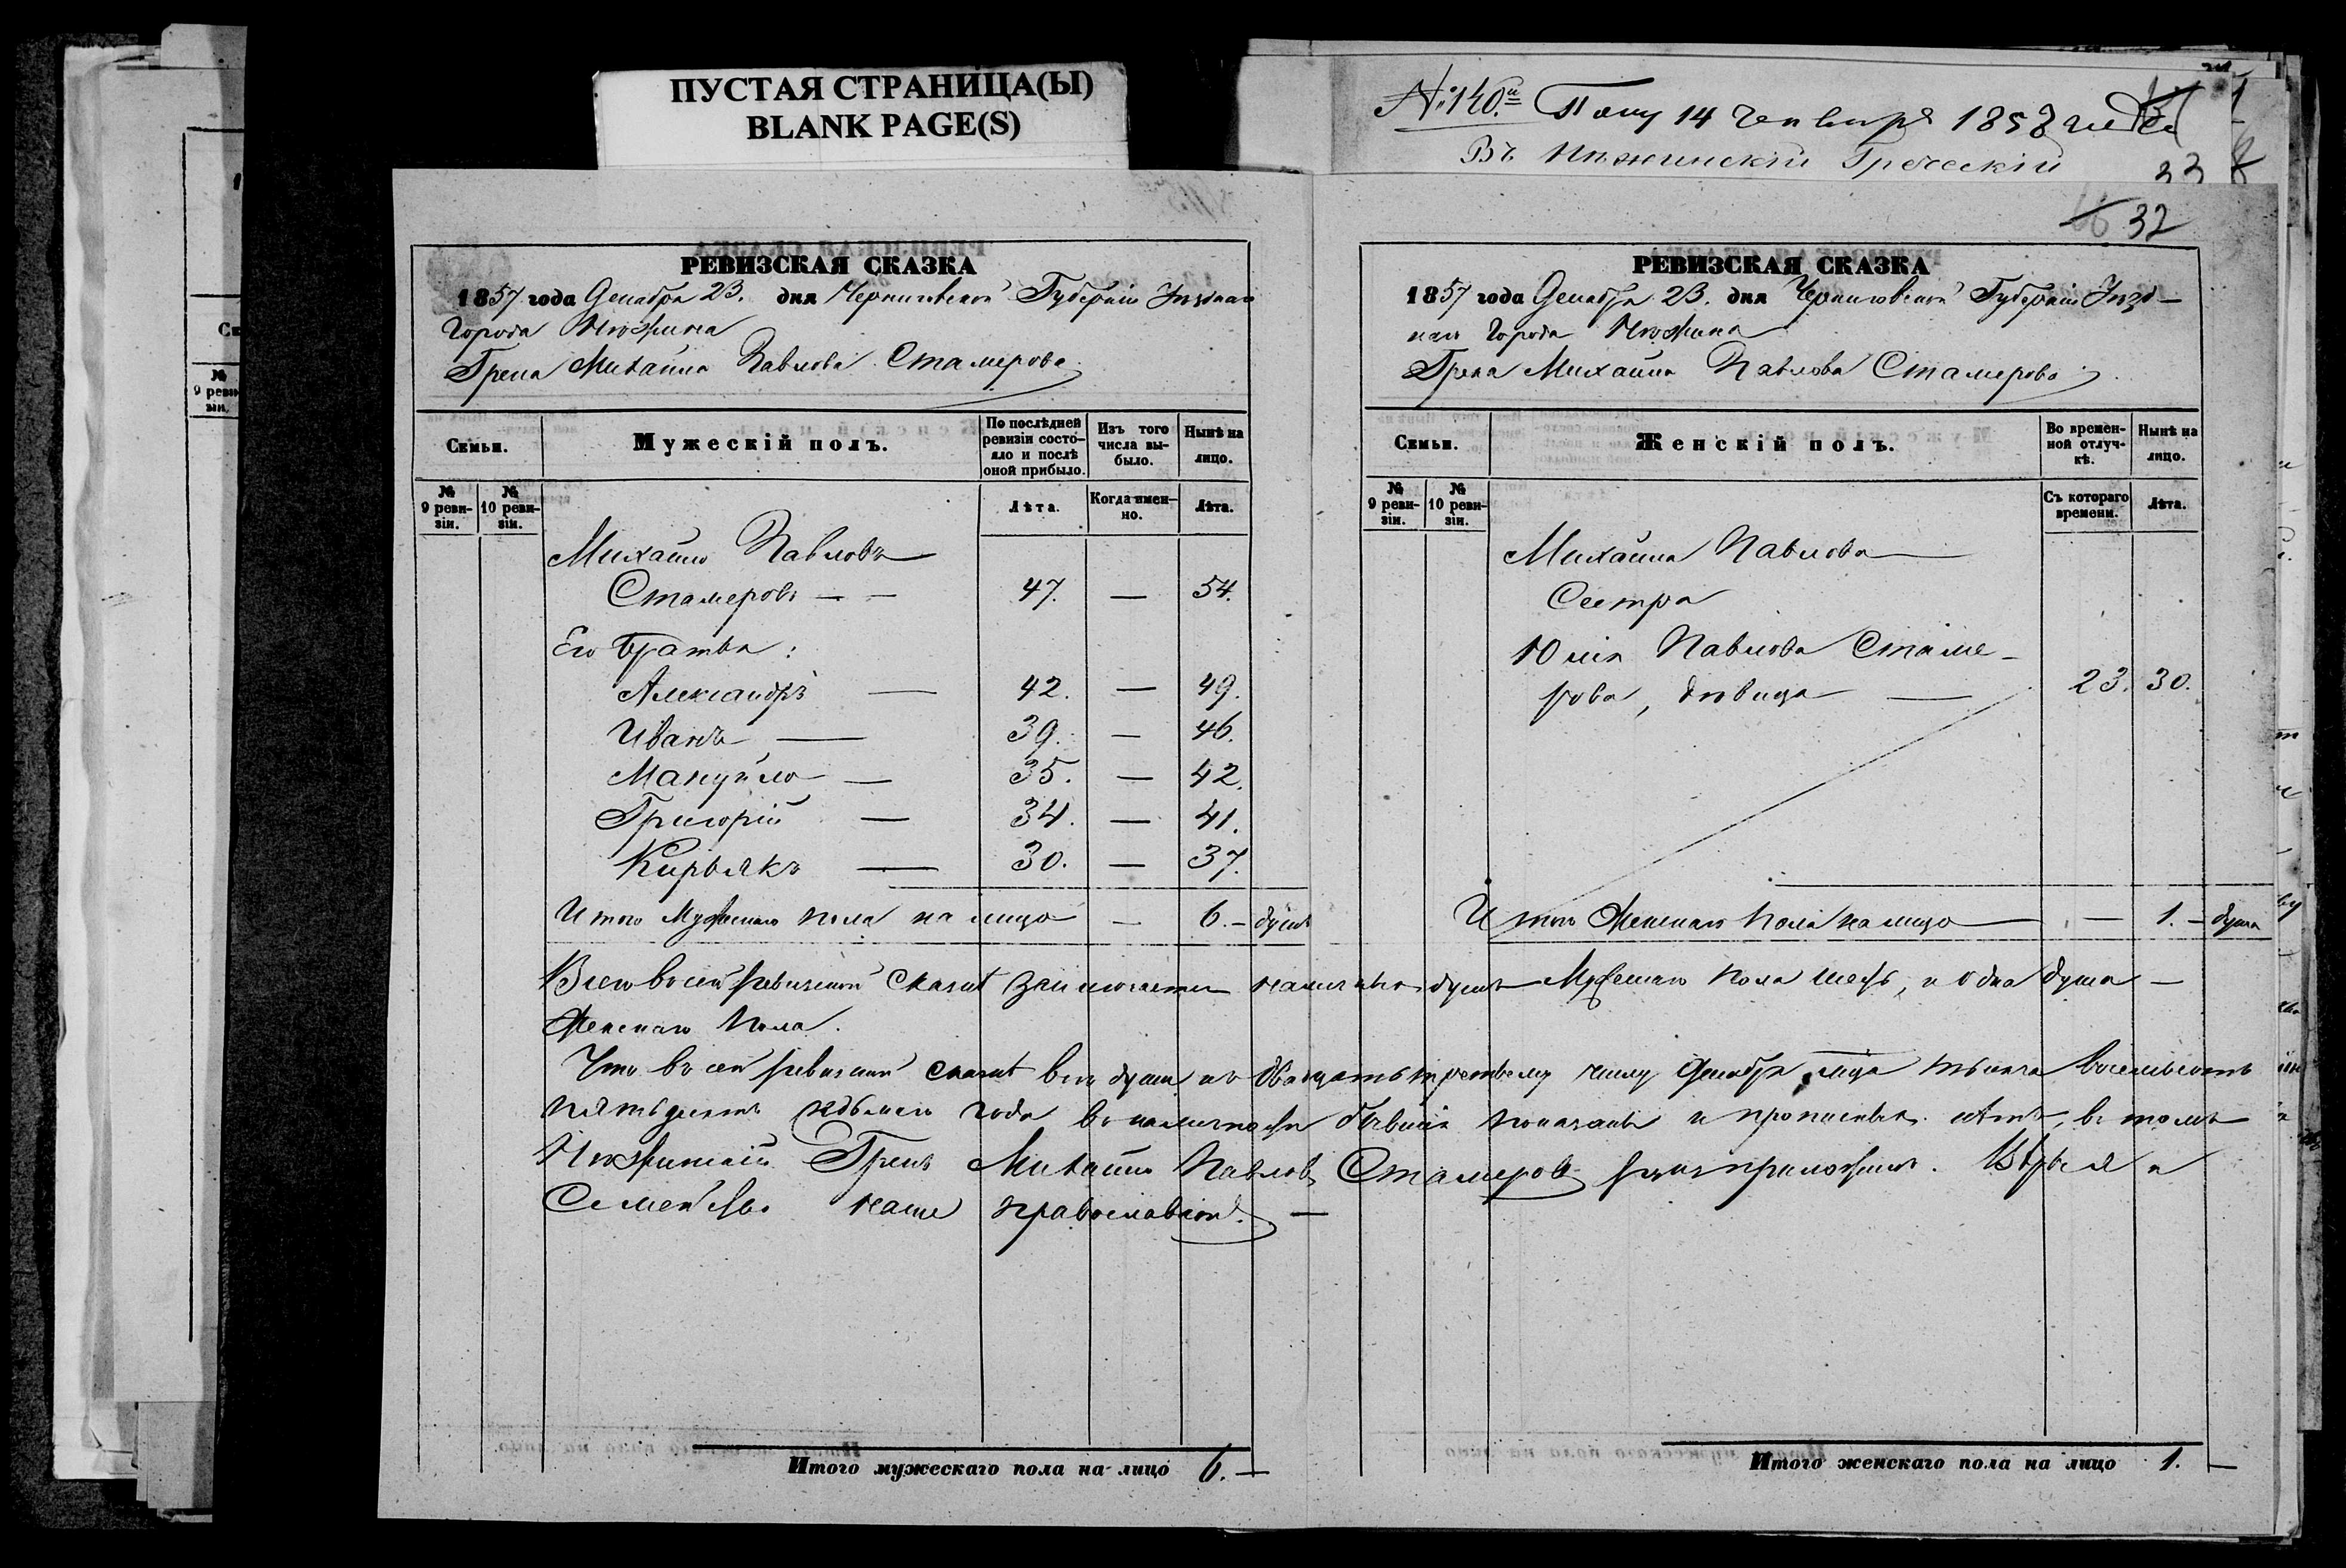 ПУСТАЯ СТРАНИЦА(Ы)
BLANK PAGE(S)
№ 140.
14 Генваря 1858
Въ Нѣжинскій Греческій
33
32
РЕВИЗСКАЯ СКАЗКА
1857 года Декабря 23. дня Черниговской Губерніи Уѣзднаго
Города Нѣжина
Грека Михайла Павлова Стамерова
Семьи.
Мужескій полъ.
По послѣдней ревизіи состояло и послѣ оной прибыло.
Изъ того числа выбыло.
Нынѣ на лицо.
№ 9 ревизіи.
№ 10 ревизіи.
Лѣта.
Когда именно.
Лѣта.
Михайло Павловъ
Стамеровъ — — 47. — 54.
Его братья:
Александръ — 42. — 49.
Иванъ — 39. — 46.
Мануйло — 35. — 42.
Григорій — 34. — 41.
Кирьякъ — 30. — 37.
Итого Мужескаго пола на лицо — 6. — душъ
РЕВИЗСКАЯ СКАЗКА
1857 года Декабря 23. дня Черниговской Губерніи Уѣзд-
наго Города Нѣжина
Грека Михайла Павлова Стамерова
Семьи.
Женскій полъ.
Во временной отлучкѣ.
Нынѣ на лицо.
№ 9 ревизіи.
№ 10 ревизіи.
Съ котораго времени.
Лѣта.
Михайла Павлова
Сестра
Юлія Павлова Стаме-
рова, дѣвица — 23. 30.
Итого Женскаго пола на лицо — — 1. — душа
Всего въ сей ревизской сказкѣ заключается наличныхъ душъ Мужескаго пола шесть, и одна душа —
Женскаго пола.
Что въ сей ревизской сказкѣ все души по двадцать третьему числу Декабря мца тысяча восемьсотъ
пятьдесятъ седьмаго года въ наличности бывшія показаны и прописныхъ нѣтъ, въ томъ
Нѣжинскій Грекъ Михайло Павловъ Стамеровъ руку приложилъ. Вѣры я и
Семейство наше православной. —
Итого мужескаго пола на лицо 6. —
Итого женскаго пола на лицо 1. —